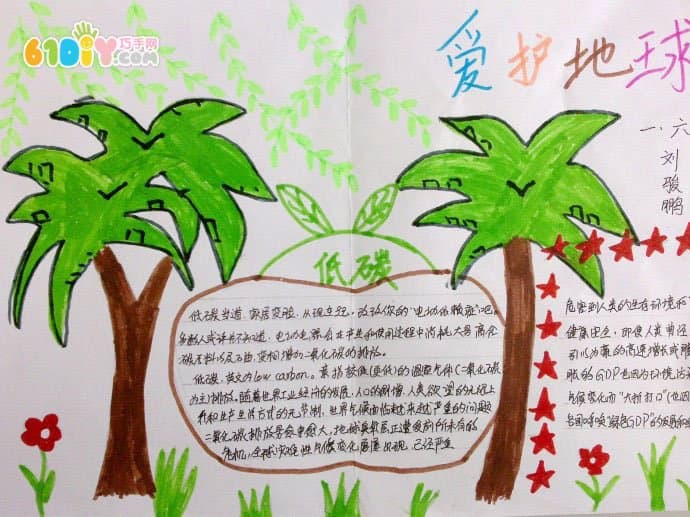 61DIY巧手网
.com
爱护地球
一.六
刘
骏
鹏
低碳
低碳当道,家居实验,从现在起,改改你的"电动依赖症"吧。
多数人或许并不知道,电力电器会在生产和使用过程中消耗大量高含
碳不料以石油,变相增加二氧化碳的排放。
低碳,英文为low carbon。意指较低(更低)的温室气体(二氧化碳
为主)排放,随着世界工业经济的发展,人口的剧增,人类欲望的无限上
升和生产生活方式的无节制,世界气候面临越来越严重的问题
二氧化碳排放量愈来愈大,地球臭氧层正遭受前所未有的
危机,全球灾难性气候变化屡屡出现,已经严重
危害到人类的生存环境和
健康安全,即使人类曾经
引以为豪的高速增长或膨
胀的GDP也因为环境污染
气候变化而"大打折扣"(也因
各国呼唤"绿色GDP"的发展